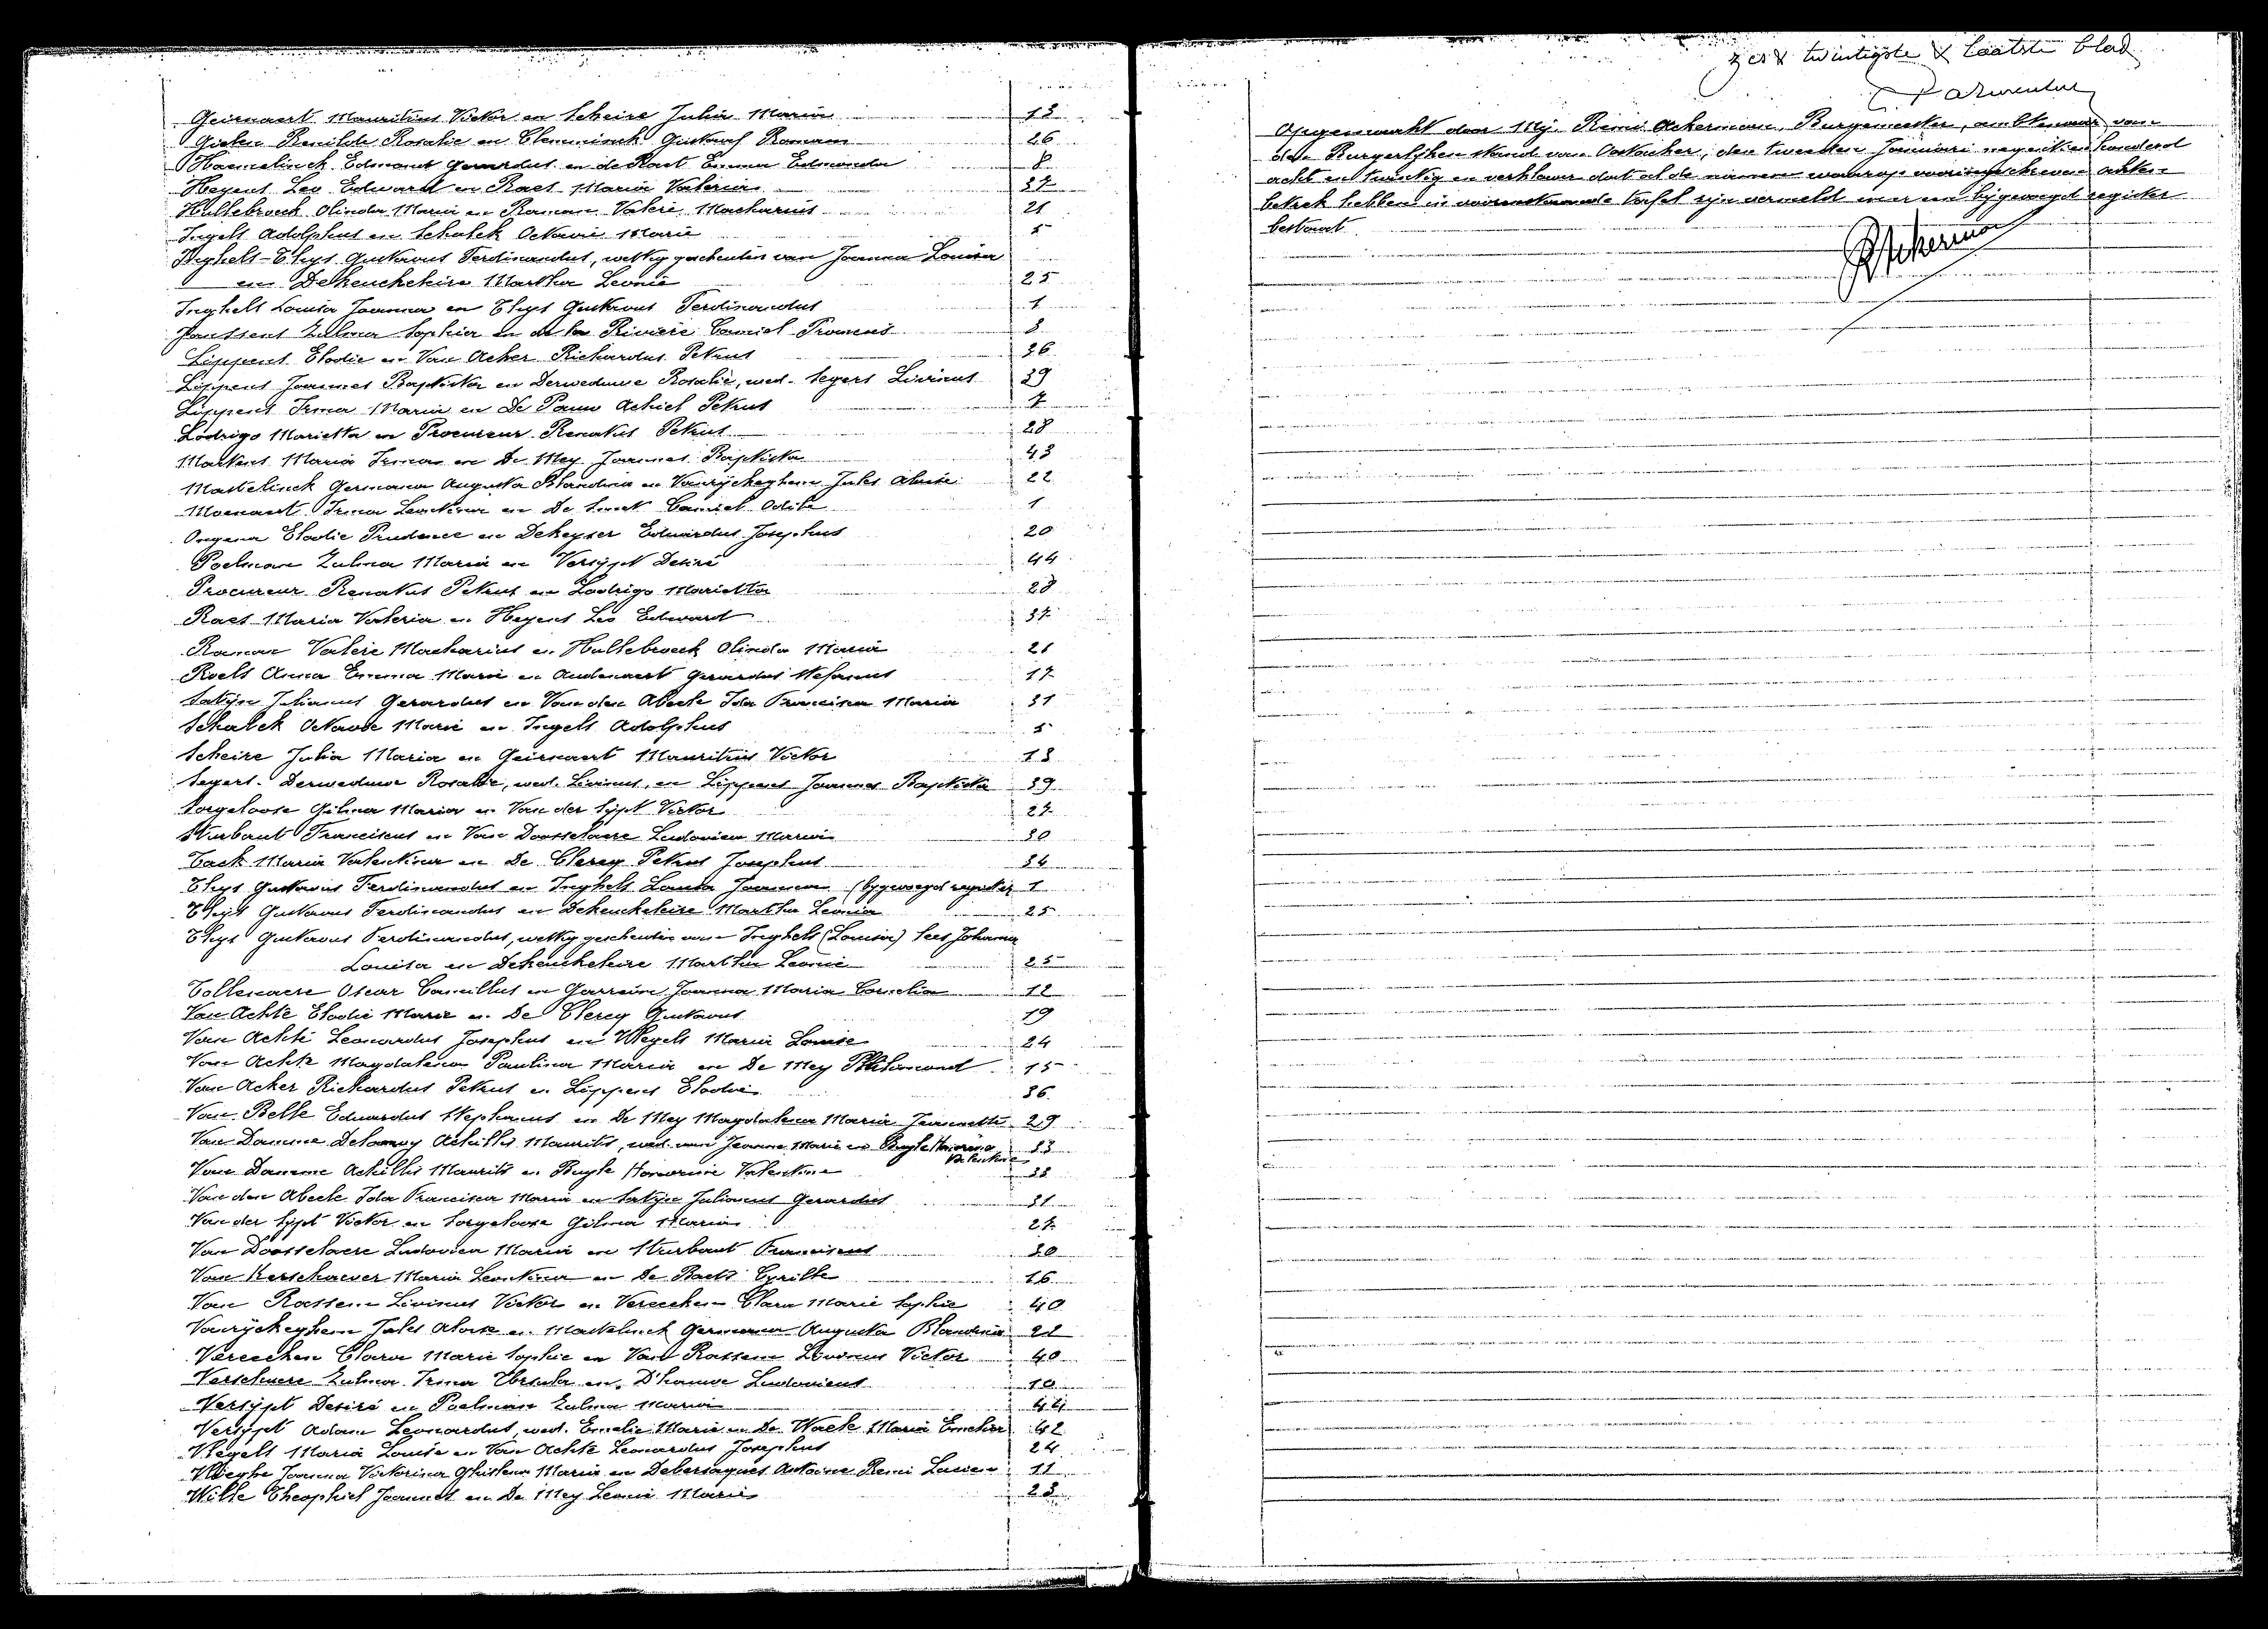 Geirnaert Mauritius Victor en Scheire Julia Maria 13
Gielen Renilde Rosalie en Clemminck Gustaaf Romain 26
Haemelinck Edmond Gerardus en de Raet Emma Edmonda 8
Heyens Leo Edward en Raes Maria Valeria 37
Hullebroeck Olinda Maria en Raman Valere Macharius 21
Ingels Adolphus en Schalck Octavie Marie 5
Inghels-Thys Gustavus Ferdinandus, wettig gescheiden van Joanna Louisa
en Dekeuckeleire Martha Leonie 25
Inghels Louisa Joanna en Thys Gustavus Ferdinandus 1
Janssens Zulma Sophia en de la Rivière Camiel Franciés 3
Lippens Elodie en Van Acker Richardus Petrus 36
Lippens Joannes Baptista en Derweduwe Rosalie, wed. Segers Livinus 39
Lippens Irma Maria en De Pauw Achiel Petrus 7
Lodrigo Marietta en Procureur Renatus Petrus 28
Martens Maria Irma en De Mey Joannes Baptista 43
Mastelinck Germana Augusta Blandina en Vanrÿckeghem Jules Aloïse 22
Moenaert Irma Leontina en De Smet Camiel Odile 1
Ongena Elodie Prudence en Dekeyser Eduardus Josephus 20
Poelman Zulma Maria en Versÿpt Desiré 44
Procureur Renatus Petrus en Lodrigo Marietta 28
Raes Maria Valeria en Heyens Leo Edward 37
Raman Valère Macharius en Hullebroeck Olinda Maria 21
Roels Anna Emma Marie en Audenaert Gerardus Stefanus 17
Satÿn Julianus Gerardus en Van den Abeele Ida Francisca Maria 31
Schalck Octavie Marie en Ingels Adolphus 5
Scheire Julia Maria en Geirnaert Mauritius Victor 13
Segers-Derweduwe Rosalie, wed. Livinus, en Lippens Joannes Baptista 39
Sorgeloose Gilma Maria en Van der Sÿpt Victor 27
Sturbaut Franciscus en Van Doosselaere Ludovica Maria 30
Tack Maria Valentina en De Clercq Petrus Josephus 34
Thys Gustavus Ferdinandus en Inghels Louisa Joanna (bygevoegd register 1
Thys Gustavus Ferdinandus en Dekeuckeleire Martha Leonia 25
Thys Gustavus Ferdinandus, wettig gescheiden van Inghels (Louisa) lees Johanna
Louisa en Dekeuckeleire Martha Leonie 25
Tollenaere Oscar Camillus en Garrein Joanna Maria Cornelia 12
Van Achte Elodie Marie en De Clercq Gustavus 19
Van Achte Leonardus Josephus en Wegels Maria Louise 24
Van Achte Magdalena Paulina Maria en De Mey Philemond 15
Van Acker Richardus Petrus en Lippens Elodie 36
Van Belle Eduardus Stephanus en De Mey Magdalena Maria Jeannette 29
Van Damme Delannoy Achilles Maurits, wed. van Jeanne Marie en Buyle Honorina Valentine 33
Van Damme Achilles Maurits en Buyle Honorine Valentine 33
Van den Abeele Ida Francisca Maria en Satÿn Julianus Gerardus 31
Van der Sÿpt Victor en Sorgeloose Gilma Maria 27
Van Doosselaere Ludovica Maria en Sturbaut Franciscus 30
Van Kerschaever Maria Leontina en De Baets Cyrille 16
Van Rossem Livinus Victor en Vereecken Clara Marie Sophie 40
Vanrÿckeghem Jules Aloïse en Mastelinck Germana Augusta Blandina 22
Vereecken Clara Marie Sophie en Van Rossem Livinus Victor 40
Verschuere Zulma Irma Ursula en D'hauwe Ludovicus 10
Versÿpt Desiré en Poelman Zulma Maria 44
Versÿpt Adam Leonardus, wed. Emelie Marie en De Waele Maria Emelia 42
Wegels Maria Louise en Van Achte Leonardus Josephus 24
Joanna Victorina Ghislena Maria en Debersaques Antoine Remi Lucien 11
Wille Theophiel Joannes en De Mey Leonie Marie 23
zes & twintigste & laatste blad
Opgemaakt door Mÿ Remi Ackerman, Burgemeester, ambtenaar van
den Burgerlÿken stand van Oostacker, den tweeden Januari negentienhonderd
acht en twintig en verklaar dat al de namen waarop vooringeschreven akten
betrek hebben in voorenstaande tafel zÿn vermeld en er een bÿgevoegd register
bestaat.
RAckerman